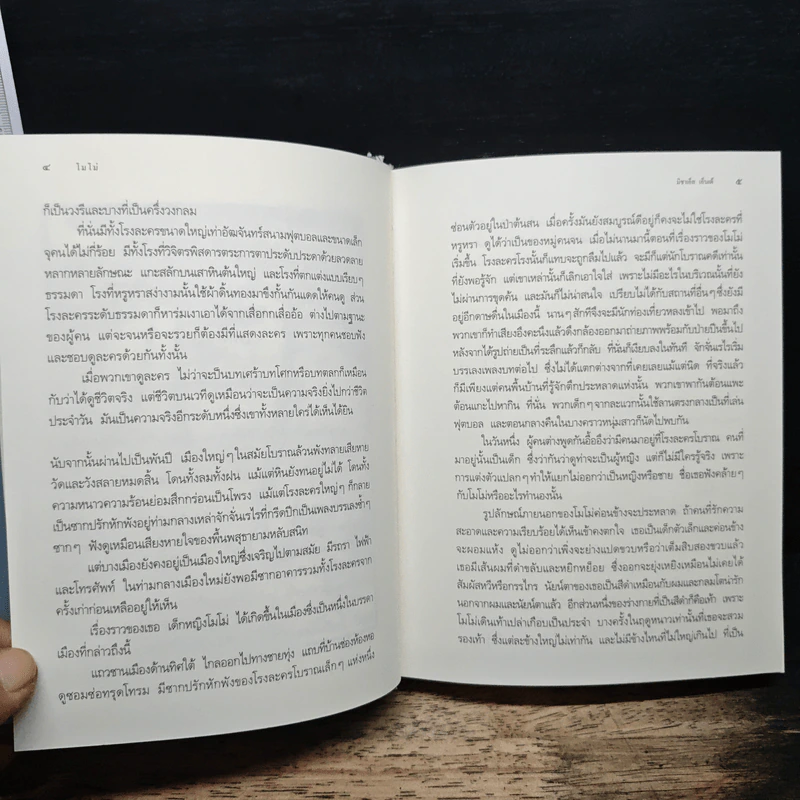 ๔ โมโม่
ก็เป็นวงรีและบางที่เป็นครึ่งวงกลม
ที่นั่นมีทั้งโรงละครขนาดใหญ่เท่าอัฒจันทร์สนามฟุตบอลและขนาดเล็ก
จุคนได้ไม่กี่ร้อย มีทั้งโรงที่วิจิตรพิสดารตระการตาประดับประดาด้วยลวดลาย
หลากหลายลักษณะ แกะสลักบนเสาหินต้นใหญ่ และโรงที่ตกแต่งแบบเรียบๆ
ธรรมดา โรงที่หรูหราสง่างามนั้นใช้ผ้าดิ้นทองมาขึงกั้นกันแดดให้คนดู ส่วน
โรงละครระดับธรรมดาก็หาร่มเงาเอาได้จากเสื่อกกเสื่ออ้อ ต่างไปตามฐานะ
ของผู้คน แต่จะจนหรือจะรวยก็ต้องมีที่แสดงละคร เพราะทุกคนชอบฟัง
และชอบดูละครด้วยกันทั้งนั้น
เมื่อพวกเขาดูละคร ไม่ว่าจะเป็นบทเศร้าบทโศกหรือบทตลกก็เหมือน
กับว่าได้ดูชีวิตจริง แต่ชีวิตบนเวทีดูเหมือนว่าจะเป็นความจริงยิ่งไปกว่าชีวิต
ประจำวัน มันเป็นความจริงอีกระดับหนึ่งซึ่งเขาทั้งหลายใคร่ได้เห็นได้ยิน
นับจากนั้นผ่านไปเป็นพันปี เมืองใหญ่ๆ ในสมัยโบราณล้วนพังทลายเสียหาย
วัดและวังสลายหมดสิ้น โดนทั้งลมทั้งฝน แม้แต่หินยังทนอยู่ไม่ได้ โดนทั้ง
ความหนาวความร้อนย่อมสึกกร่อนเป็นโพรง แม้แต่โรงละครใหญ่ๆ ก็กลาย
เป็นซากปรักหักพังอยู่ท่ามกลางเหล่าจักจั่นเรไรที่กรีดปีกเป็นเพลงบรรเลงซ้ำๆ
ซากๆ ฟังดูเหมือนเสียงหายใจของพื้นพสุธายามหลับสนิท
แต่บางเมืองยังคงอยู่เป็นเมืองใหญ่ซึ่งเจริญไปตามสมัย มีรถรา ไฟฟ้า
และโทรศัพท์ ในท่ามกลางเมืองใหม่ยังพอมีซากอาคารรวมทั้งโรงละครจาก
ครั้งเก่าก่อนเหลืออยู่ให้เห็น
เรื่องราวของเธอ เด็กหญิงโมโม่ ได้เกิดขึ้นในเมืองซึ่งเป็นหนึ่งในบรรดา
เมืองที่กล่าวถึงนี้
แถวชานเมืองด้านทิศใต้ ไกลออกไปทางชายทุ่ง แถบที่บ้านช่องห้องหอ
ดูซอมซ่อทรุดโทรม มีซากปรักหักพังของโรงละครโบราณเล็กๆ แห่งหนึ่ง
มิชาเอ็ล เอ็นเด้ ๕
ซ่อนตัวอยู่ในป่าต้นสน เมื่อครั้งมันยังสมบูรณ์ดีอยู่ก็คงจะไม่ใช่โรงละครที่
หรูหรา ดูได้ว่าเป็นของหมู่คนจน เมื่อไม่นานมานี้ตอนที่เรื่องราวของโมโม่
เริ่มขึ้น โรงละครโรงนั้นก็แทบจะถูกลืมไปแล้ว จะมีก็แต่นักโบราณคดีเท่านั้น
ที่ยังพอรู้จัก แต่เขาเหล่านั้นก็เลิกเอาใจใส่ เพราะไม่มีอะไรในบริเวณนั้นที่ยัง
ไม่ผ่านการขุดค้น และมันก็ไม่น่าสนใจ เปรียบไม่ได้กับสถานที่อื่นๆ ซึ่งยังมี
อยู่อีกดาษดื่นในเมืองนี้ นานๆ สักทีจึงจะมีนักท่องเที่ยวหลงเข้าไป พอมาถึง
พวกเขาก็ทำเสียงอึงคะนึงแล้วดึงกล้องออกมาถ่ายภาพพร้อมกับป่ายปีนขึ้นไป
หลังจากได้รูปถ่ายเป็นที่ระลึกแล้วก็กลับ ที่นั่นก็เงียบลงในทันที จักจั่นเรไรเริ่ม
บรรเลงเพลงบทต่อไป ซึ่งไม่ได้แตกต่างจากที่เคยเลยแม้แต่นิด ที่จริงแล้ว
ก็มีเพียงแต่คนพื้นบ้านที่รู้จักตึกประหลาดแห่งนั้น พวกเขาพากันต้อนแพะ
ต้อนแกะไปหากิน ที่นั่น พวกเด็กๆ จากละแวกนั้นใช้ลานตรงกลางเป็นที่เล่น
ฟุตบอล และตอนกลางคืนในบางคราวหนุ่มสาวก็นัดไปพบกัน
ในวันหนึ่ง ผู้คนต่างพูดกันอื้ออึงว่ามีคนมาอยู่ที่โรงละครโบราณ คนที่
มาอยู่นั้นเป็นเด็ก ซึ่งว่ากันว่าดูท่าจะเป็นผู้หญิง แต่ก็ไม่มีใครรู้จริง เพราะ
การแต่งตัวแปลกๆ ทำให้แยกไม่ออกว่าเป็นหญิงหรือชาย ชื่อเธอฟังคล้ายๆ
กับโมโม่หรืออะไรทำนองนั้น
รูปลักษณ์ภายนอกของโมโม่ค่อนข้างจะประหลาด ถ้าคนที่รักความ
สะอาดและความเรียบร้อยได้เห็นเข้าคงตกใจ เธอเป็นเด็กตัวเล็กและค่อนข้าง
จะผอมแห้ง ดูไม่ออกว่าเพิ่งจะย่างแปดขวบหรือว่าเต็มสิบสองขวบแล้ว
เธอมีเส้นผมที่ดำขลับและหยิกหย็อย ซึ่งออกจะยุ่งเหยิงเหมือนไม่เคยได้
สัมผัสหวีหรือกรรไกร นัยน์ตาของเธอเป็นสีดำเหมือนกับผมและกลมโตน่ารัก
นอกจากผมและนัยน์ตาแล้ว อีกส่วนหนึ่งของร่างกายที่เป็นสีดำก็คือเท้า เพราะ
โมโม่เดินเท้าเปล่าเกือบเป็นประจำ บางครั้งในฤดูหนาวเท่านั้นที่เธอจะสวม
รองเท้า ซึ่งแต่ละข้างใหญ่ไม่เท่ากัน และไม่มีข้างไหนที่ไม่ใหญ่เกินไป ที่เป็น